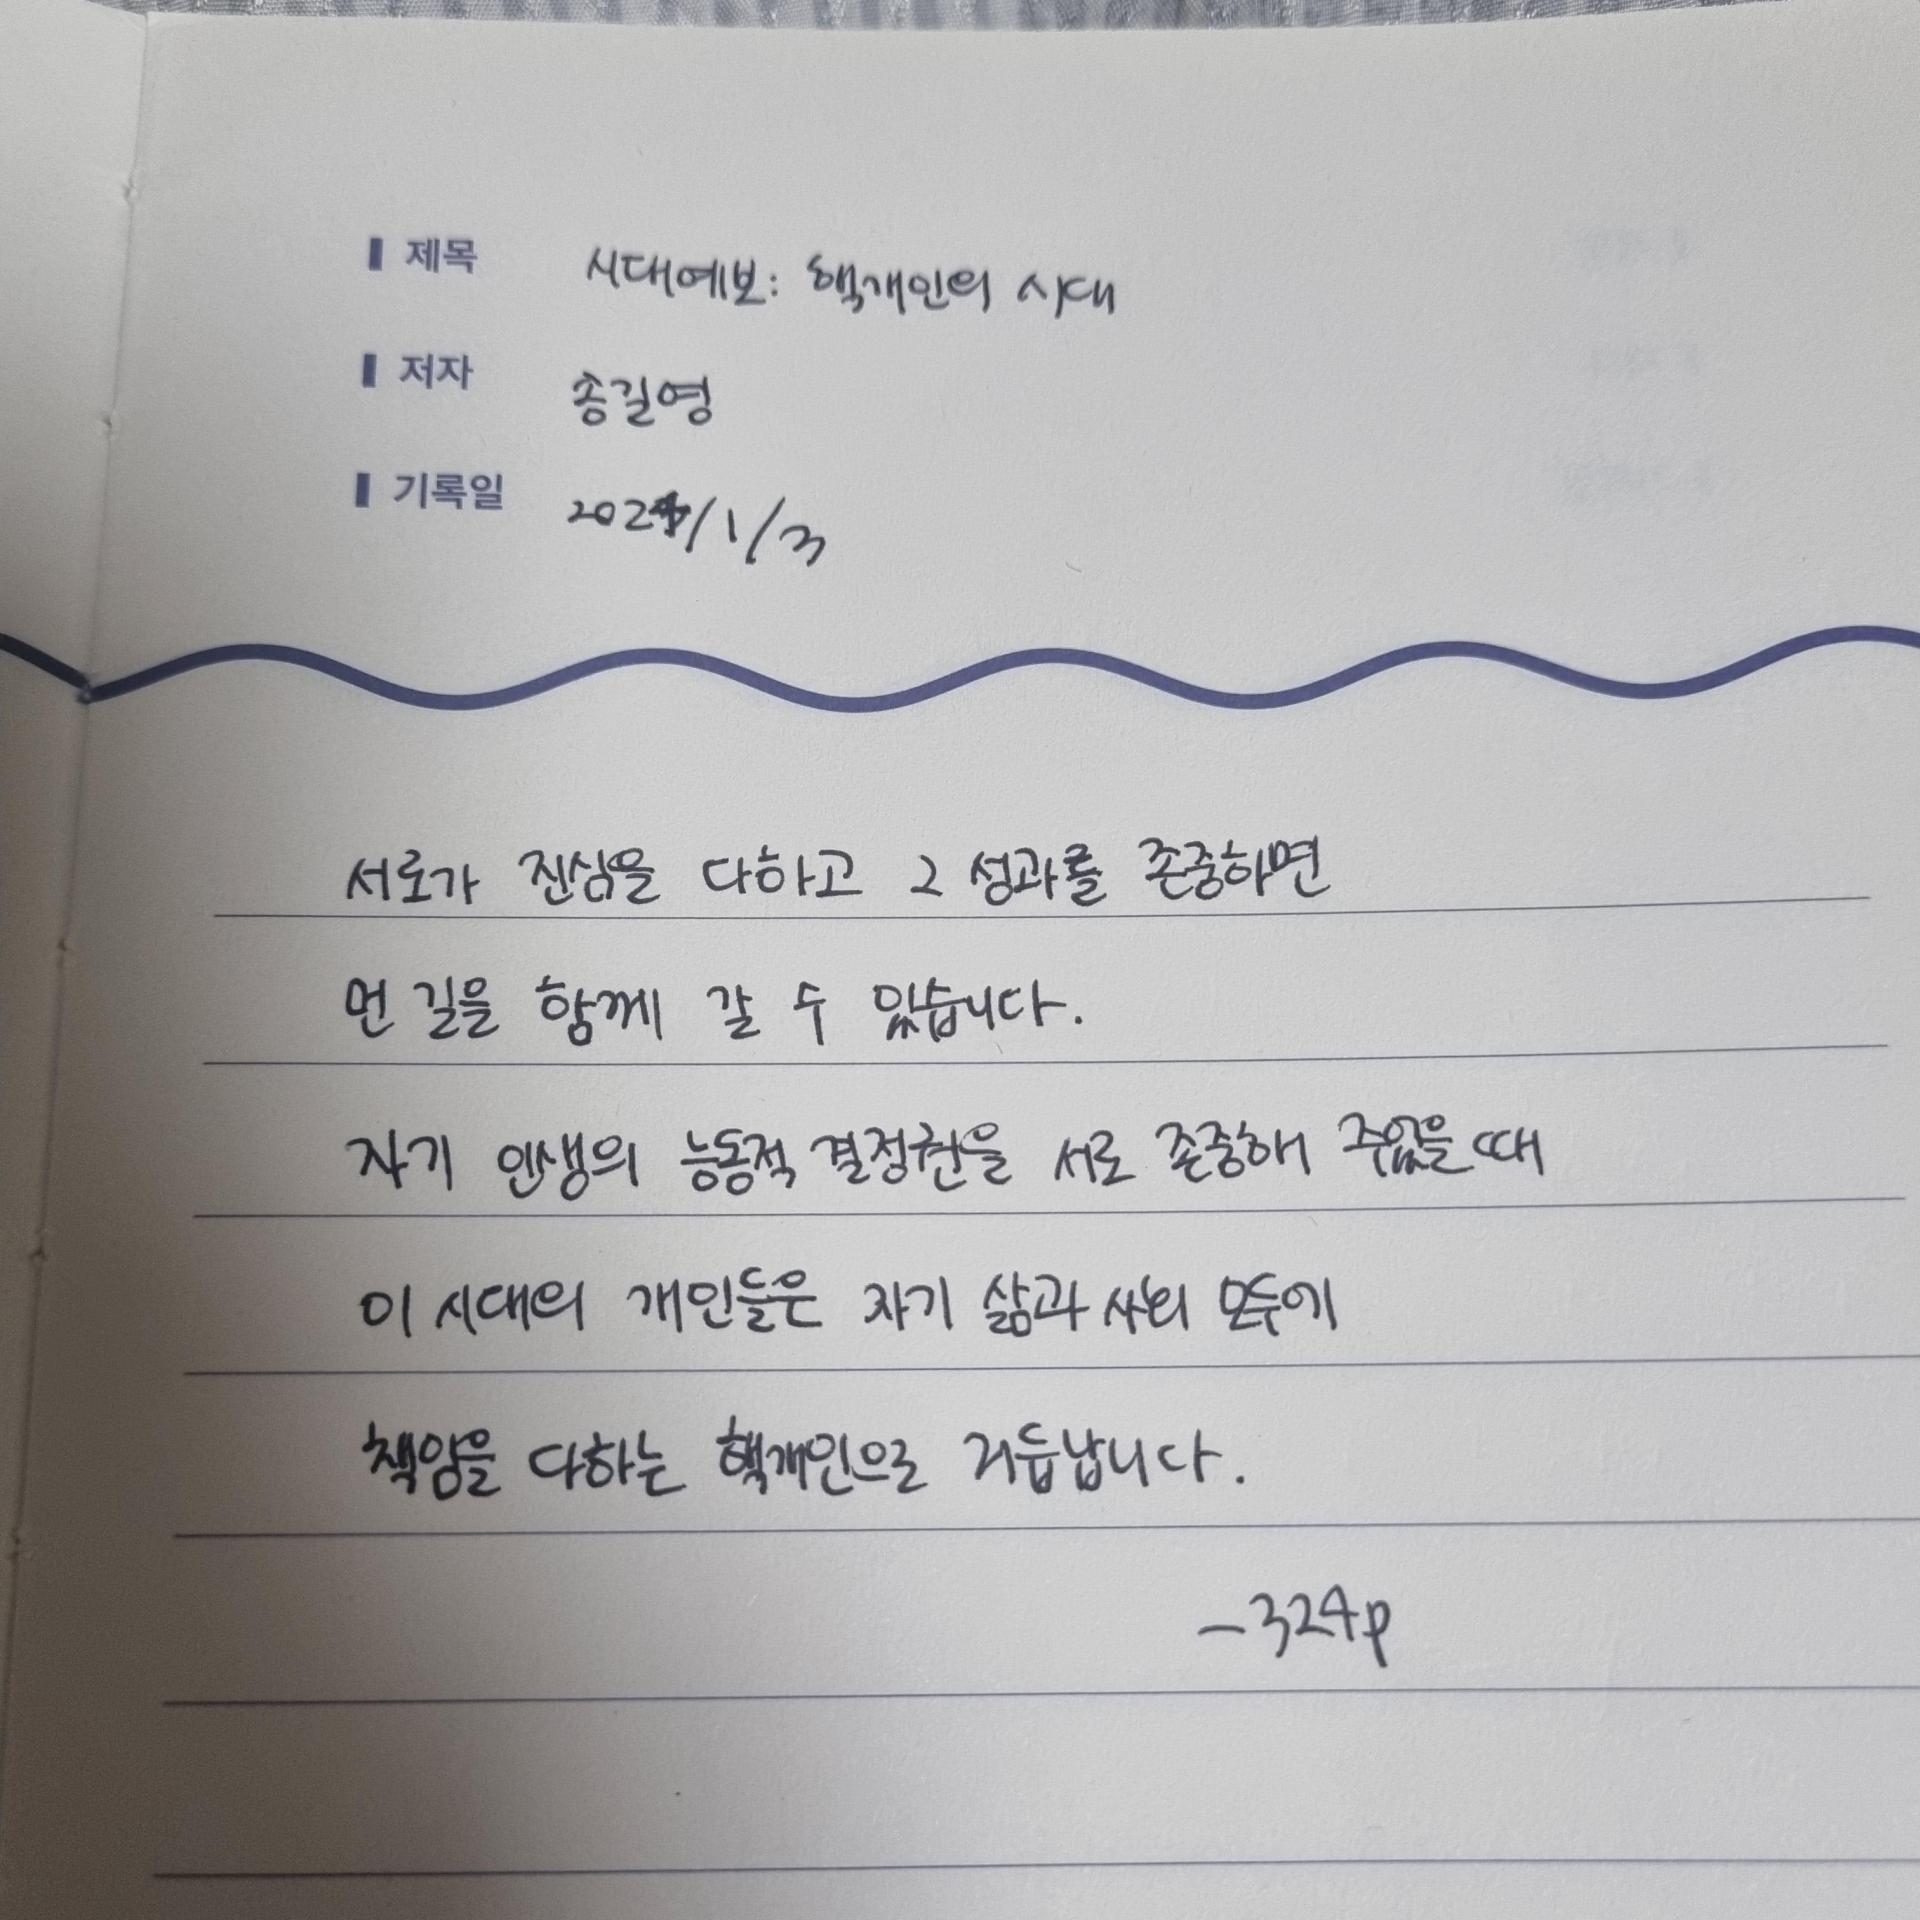 제목 시대예보: 핵개인의 시대
저자 송길영
기록일 2024/1/3
서로가 진심을 다하고 그 성과를 존중하면
먼 길을 함께 갈 수 있습니다.
자기 인생의 능동적 결정권을 서로 존중해 주었을 때
이 시대의 개인들은 자기 삶과 사회 모두에
책임을 다하는 핵개인으로 거듭납니다.
-324p